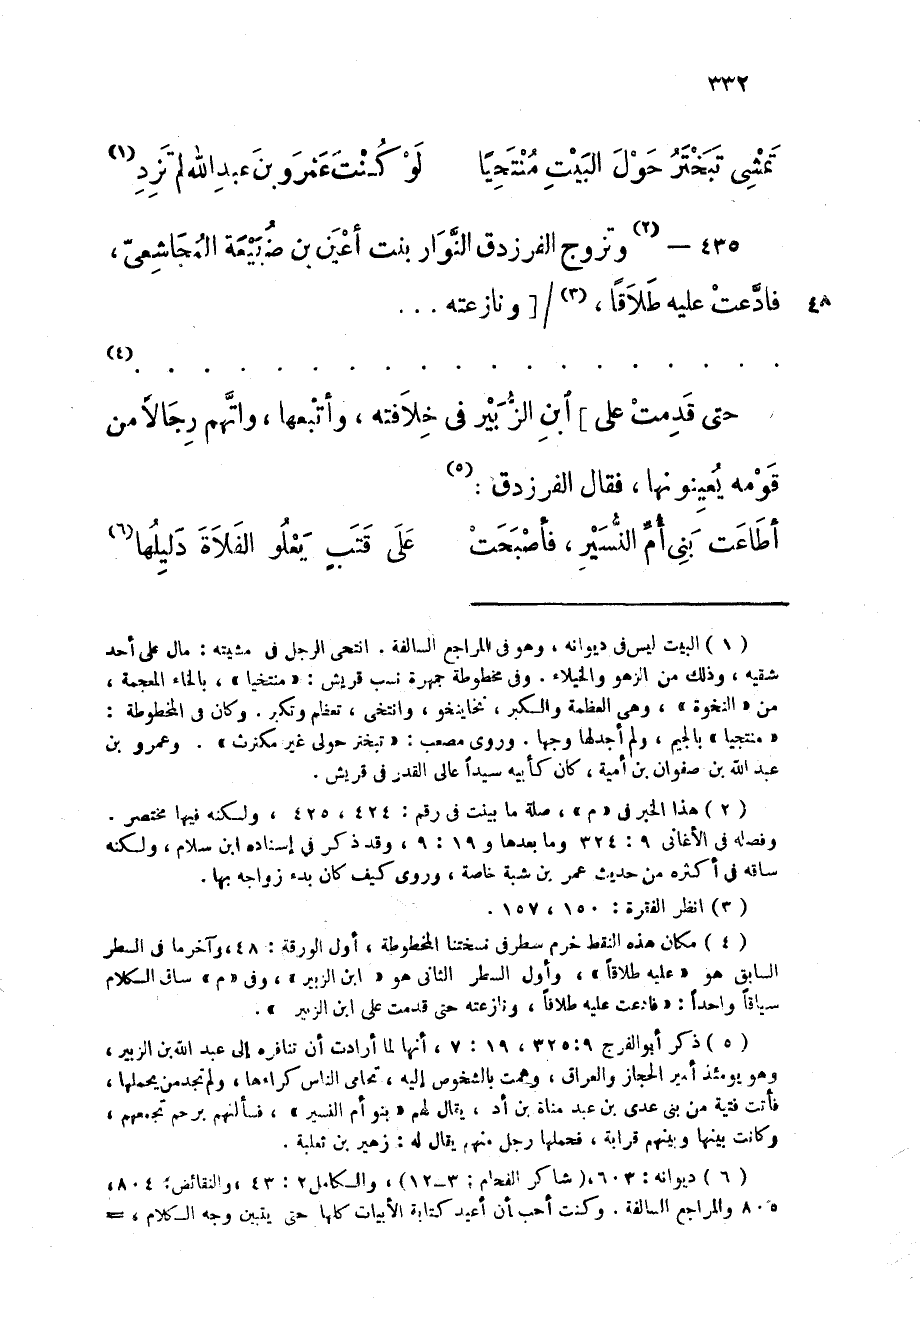 ٣٣٢
تَمْشِى تَبَخْتَرُ حَوْلَ البَيْتِ مُنْتَحِيًا لَوْ كُنْتَ عَمْرَو بنَ عبدِ الله لم تَزِدِ (١)
٤٣٥ – (٢) وتزوج الفرزدق النَّوَار بنت أَعْيَن بن ضُبَيْعَة المُجَاشعىّ ،
٤٨ فادَّعتْ عليه طَلَاقًا ، (٣) / [ ونازعته ...
. . . . . . . . . . . . . . . . . . . (٤)
حتى قَدِمتْ على ] ٱبنِ الزُّبَيْر فى خِلَافته ، وأَتْبعها ، واتَّهم رِجَالاً من
قَوْمه يُعِينونها ، فقال الفرزدق : (٥)
أطَاعَت بَنِى أُمِّ النُّسَيْرِ ، فأَصْبَحَتْ عَلَى قَتَبٍ يَعْلُو الفَلَاةَ دَلِيلُها (٦)
( ١ ) البيت ليس فى ديوانه ، وهو فى المراجع السالفة . انتحى الرجل فى مشيته : مال على أحد
شقيه ، وذلك من الزهو والخيلاء . وفى مخطوطة جمهرة نسب قريش : « منتخيا » ، بالخاء المعجمة ،
من « النخوة » ، وهى العظمة والكبر ، نخا ينخو ، وانتخى ، تعظم وتكبر . وكان فى المخطوطة :
« منتجيا » بالجيم ، ولم أجد لها وجها . وروى مصعب : « تبختر حولى غير مكترث » . وعمرو بن
عبد الله بن صفوان بن أمية ، كان كأبيه سيداً عالى القدر فى قريش .
( ٢ ) هذا الخبر فى « م » ، صلة ما بينت فى رقم : ٤٢٤ ، ٤٢٥ ، ولكنه فيها مختصر .
وفصله فى الأغانى ٩ : ٣٢٤ وما بعدها و ١٩ : ٩ ، وقد ذكر فى إسناده ابن سلام ، ولكنه
ساقه فى أكثره من حديث عمر بن شبة خاصة ، وروى كيف كان بدء زواجه بها .
( ٣ ) انظر الفقرة : ١٥٠ ، ١٥٧ .
( ٤ ) مكان هذه النقط خرم سطر فى نسختنا المخطوطة ، أول الورقة : ٤٨ ، وآخر ما فى السطر
السابق هو « عليه طلاقاً » ، وأول السطر الثانى هو « ابن الزبير » ، وفى « م » ساق الكلام
سياقاً واحداً : « فادعت عليه طلاقاً ، ونازعته حتى قدمت على ابن الزبير » .
( ٥ ) ذكر أبو الفرج ٩ : ٣٢٥ ، ١٩ : ٧ ، أنها لما أرادت أن تنافره إلى عبد الله بن الزبير ،
وهو يومئذ أمير الحجاز والعراق ، وهمت بالشخوص إليه ، تحامى الناس كراءها ، ولم تجد من يحملها ،
فأتت فتية من بنى عدى بن عبد مناة بن أد ، يقال لهم « بنو أم النسير » ، فسألتهم برحم تجمعهم ،
وكانت بينها وبينهم قرابة ، فحملها رجل منهم يقال له : زهير بن ثعلبة .
( ٦ ) ديوانه : ٦٠٣ ، ( شاكر الفحام : ٣ – ١٢ ) ، والكامل ٢ : ٤٣ ، والنقائض : ٨٠٤ ،
٨٠٥ والمراجع السالفة . وكنت أحب أن أعيد كتابة الأبيات كلها حتى يتبين وجه الكلام ، =